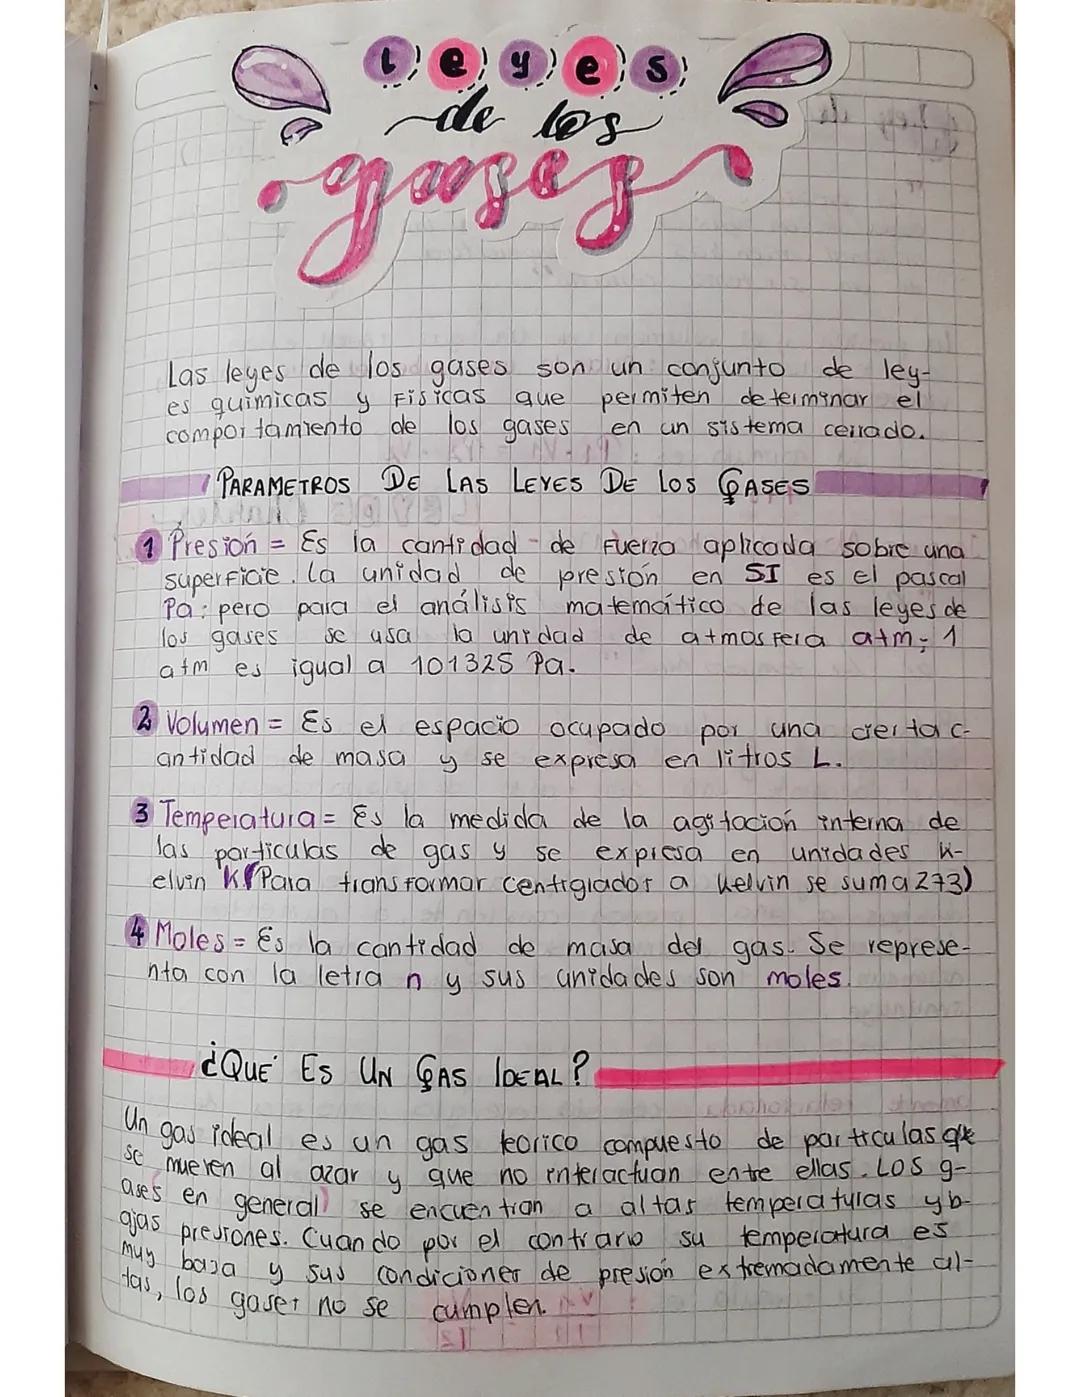 Leyes
de los
gases
Las leyes de los gases son un conjunto de ley-
es quimicas y Fisicas que permiten determinar el
comportamiento de los gases en un sistema cerrado.
PARAMETROS DE LAS LEYES DE LOS GASES
1 Presión = Es la cantidad de Fuerza aplicada sobre una
superficie. La unidad de presión en SI es el pascal
Pa; pero para el análisis matemático de las leyes de
los gases se usa la unidad de atmosfera atm; 1
atm es igual a 101325 Pa.
2 Volumen = Es el espacio ocupado por una cierta c-
antidad de masa y se expresa en litros L.
3 Temperatura = Es la medida de la agitación interna de
las particulas de gas y se expresa en unidades k-
elvin K (Para transformar centigrados a kelvin se suma 273)
4 Moles = Es la cantidad de masa del gas. Se represe-
nta con la letra n y sus unidades son moles.
¿QUÉ ES UN GAS IDEAL?
Un gas ideal es un gas teorico compuesto de particulas que
se mueven al azar y que no interactuan ente ellas. Los g-
ases en general se encuentran a altas temperaturas y b-
ajas presiones. Cuando por el contrario su temperatura es
muy baja y sus condiciones de presión extremadamente al-
tas, los gases no se cumplen.